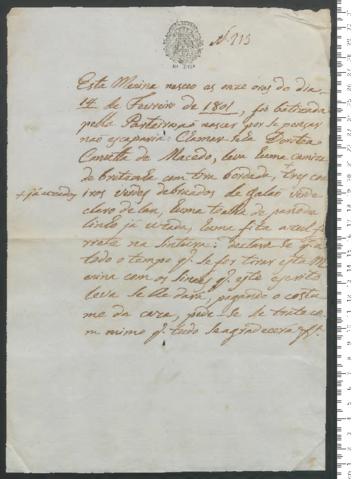 N. 113
Esta Menina nasceo as onze oras do dia,
14 de Fevreiro de 1801, foi batizada
pella Parteira ao nascer por se pensar
não escaparia: Clamar-se-da Dorotea
de Macedo, leva huma camiza
de bertanha com tira bordada, tres
+ já uzados verdes debruados de galão verde
claro de lan, huma toalha de pano de
linho já uzada, huma fita azul
na Sintura: declara-se q
todo o tempo q. se for tirar esta Me
nina com os Sinaes q. este escrito
leva se lhe dará, pagando o costu
me da caza, pede-se se trate co
m mimo q. tudo se agradecerá